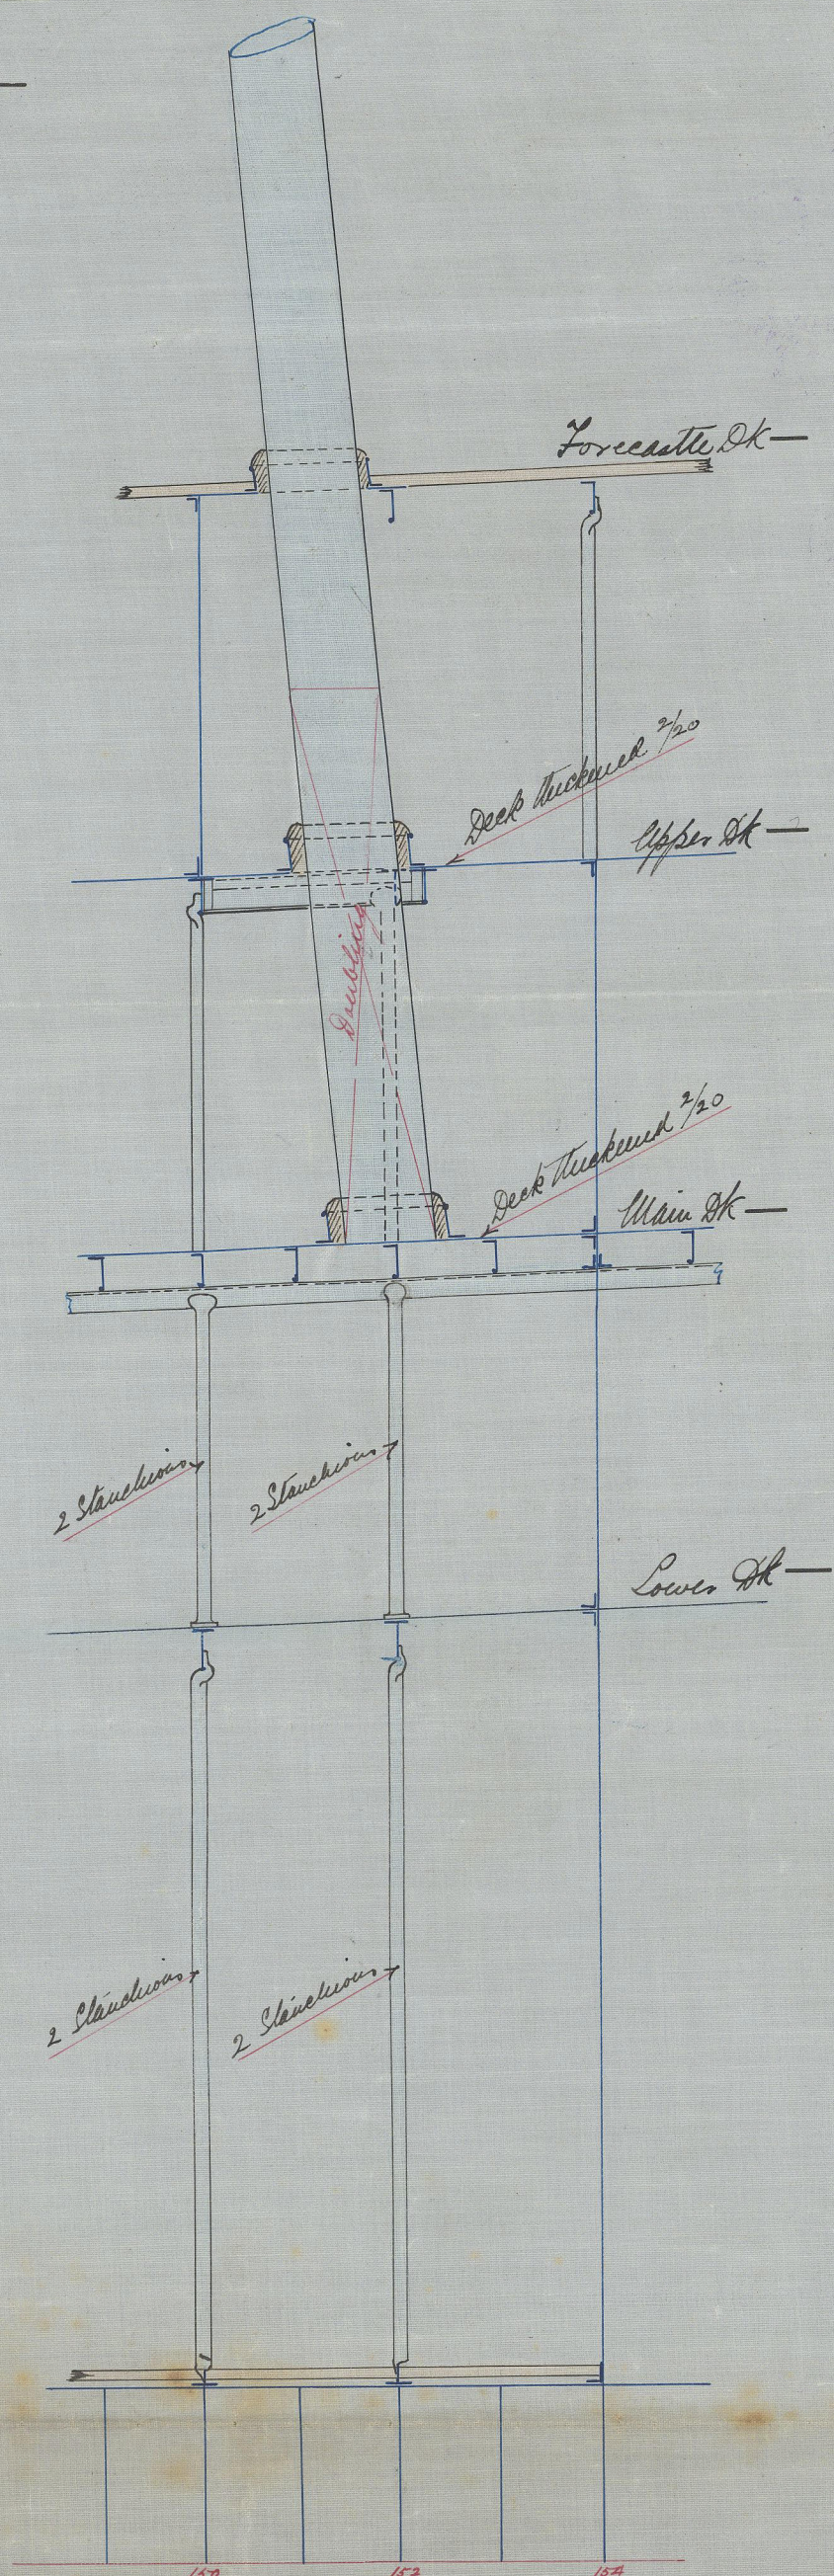 Forecastle Dk —
Deck thickened 2/20
Upper Dk —
Doubling
Deck thickened 2/20
Main Dk —
2 Stanchions
2 Stanchions
Lower Dk —
2 Stanchions
2 Stanchions
150
152
154